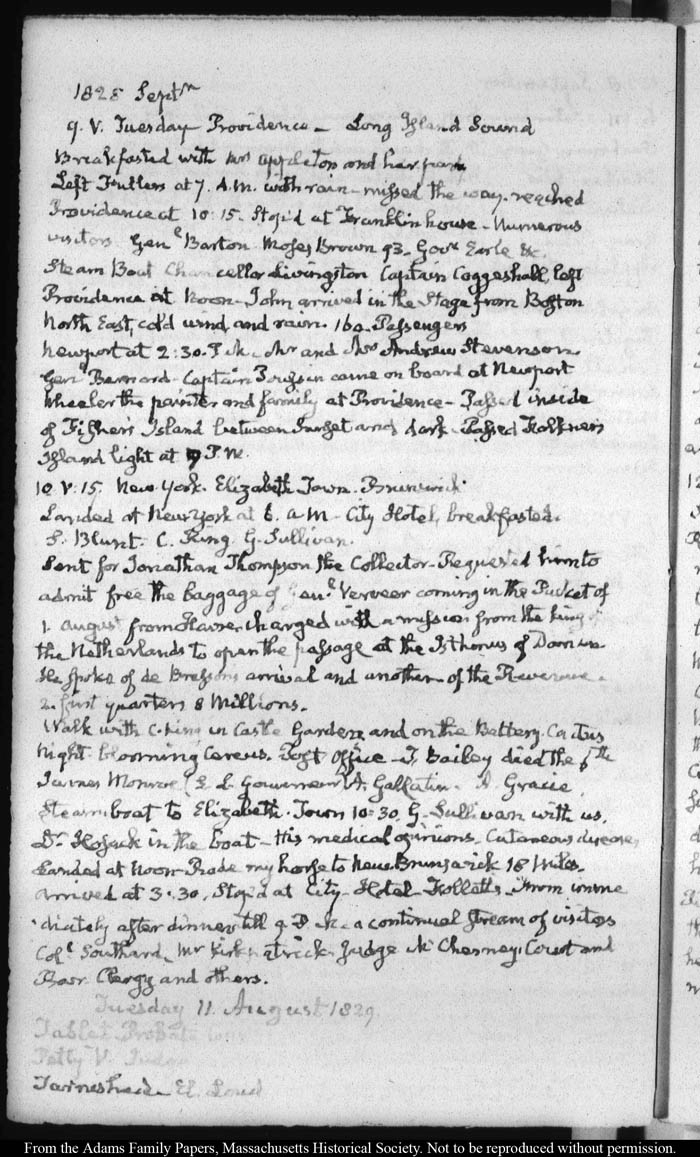 1828 Septr
9. V. Tuesday Providence - Long Island Sound
Breakfasted with Mrs Appleton and her
Left Fullers at 7. A.M. with rain - missed the way. reached
Providence at 10:15. Stop'd at Franklin house - Numerous
visitors Genl Barton - Moses Brown 93. Govr Earle &c.
Steam Boat Chancellor Livingston Captain Coggeshall, left
Providence at Noon - John arrived in the Stage from Boston
North East, cold wind and rain. 160 Passengers
Newport at 2:30. P.M. Mr and Mrs Andrew Stevenson
Gen Bernard - Captain came on board at Newport
Wheeler the painter and family at Providence - Passed inside
of Fisher's Island between Sunset and dark - Passed Falkner's
Island light at 9 P.M.
10. V:15. New York. Elizabeth Town. Brunswick.
Landed at New York at 6. A.M - City Hotel, breakfasted.
Blunt. C. King. G. Sullivan.
Sent for Jonathan Thompson the Collector - Requested him to
admit free the baggage of Genl Verveer coming in the Packet of
1. August from Havre. charged with a mission from the king of
the Netherlands to open the passage at the Isthmus of Darien
He spoke of de Bresson's arrival and another of the Revenue.
2. first quarters 8 Millions.
Walk with C. King in Castle Garden, and on the Battery. Cactus
Night blooming Cereus. Post Office - T. Bailey died the 5th
James Monroe (S. L. Gouverneur) A. Gallatin. A. Gracie.
Steam boat to Elizabeth-Town 10:30. G. Sullivan with us.
Dr Hosack in the boat - His medical opinions. Cutaneous diseases
Landed at Noon - Rode my horse to New Brunswick 18 Miles.
arrived at 3:30. Stop'd at City-Hotel - Follett's - From imme
diately after dinner till 9. P.M. a continual stream of visitors
Coll Southard, Mr Kirkpatrick Judge McChesney, Court and
Bar. Clergy and others.
Tuesday 11. August 1829.
Tablet Probate
Petty V. Judge